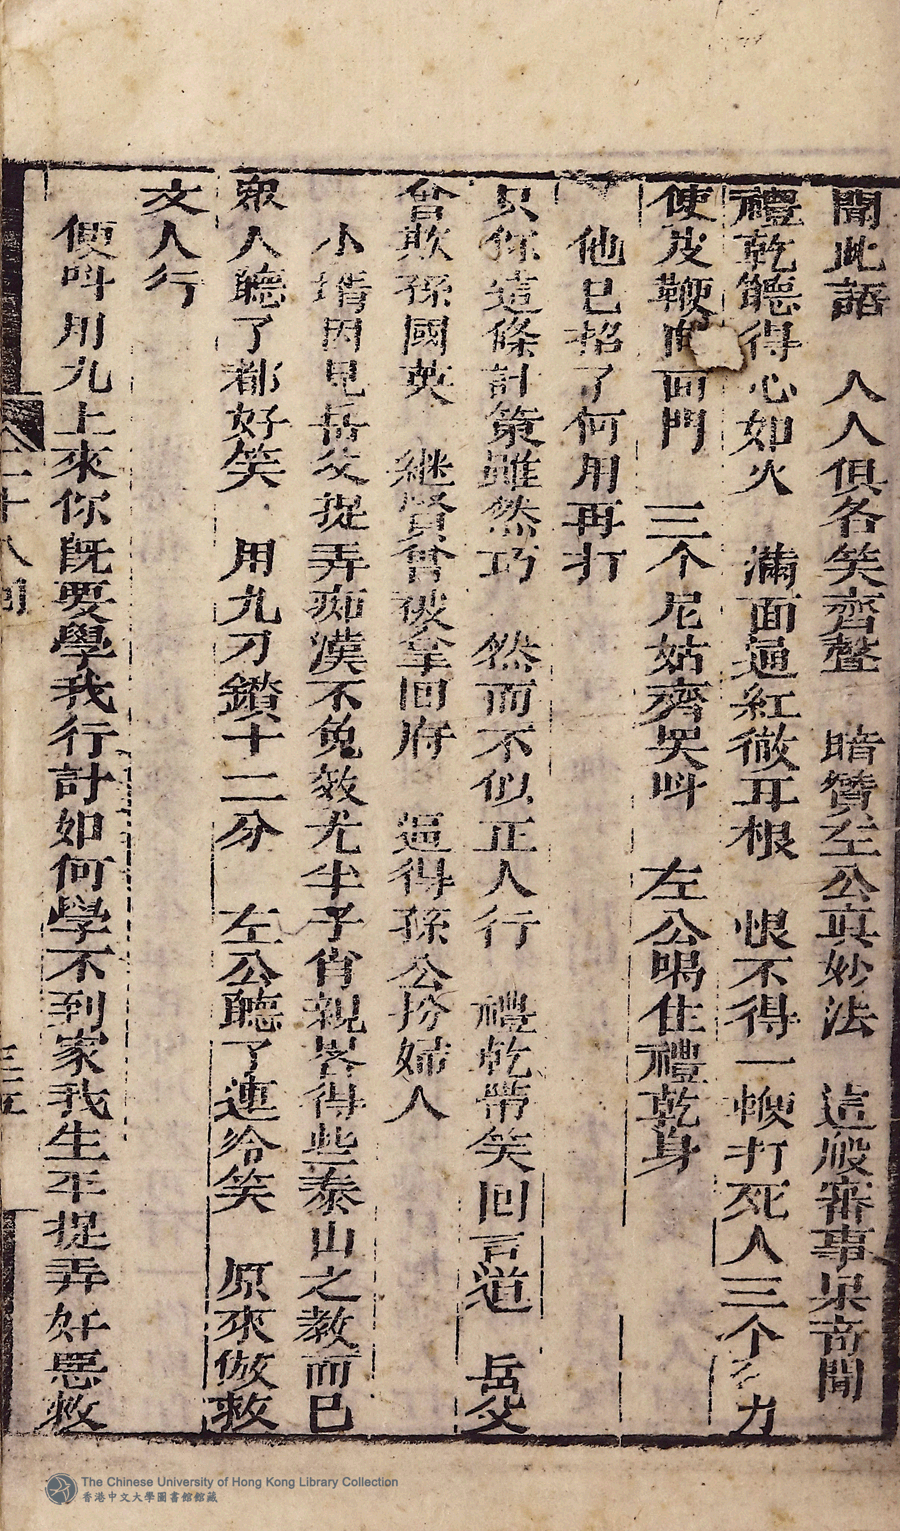 聞此語　人人俱各笑齊聲　暗贊左公真妙法　這般審事果奇聞
禮乾聽得心如火　滿面通紅徹耳根　恨不得一鞭打死人三个　力
使皮鞭向面門　三个尼姑齊吳呌　左公喝住禮乾身
他已招了何用再打
只你這條計策雖然巧　然而不似正人行　禮乾帶笑回言道　岳父
曾欺孫國英　継賢曾被拿回府　逼得孫公扮婦人
小壻因見岳父捉弄痴漢不免效尤半子肖親畧得些泰山之教而已
衆人聽了都好笑　用九刁鑽十二分　左公聽了連冷笑　原來倣救
文人行
便呌用九上來你既要學我行計如何學不到家我生平捉弄奸惡救
二十八回
三五
The Chinese University of Hong Kong Library Collection
香港中文大學圖書館館藏